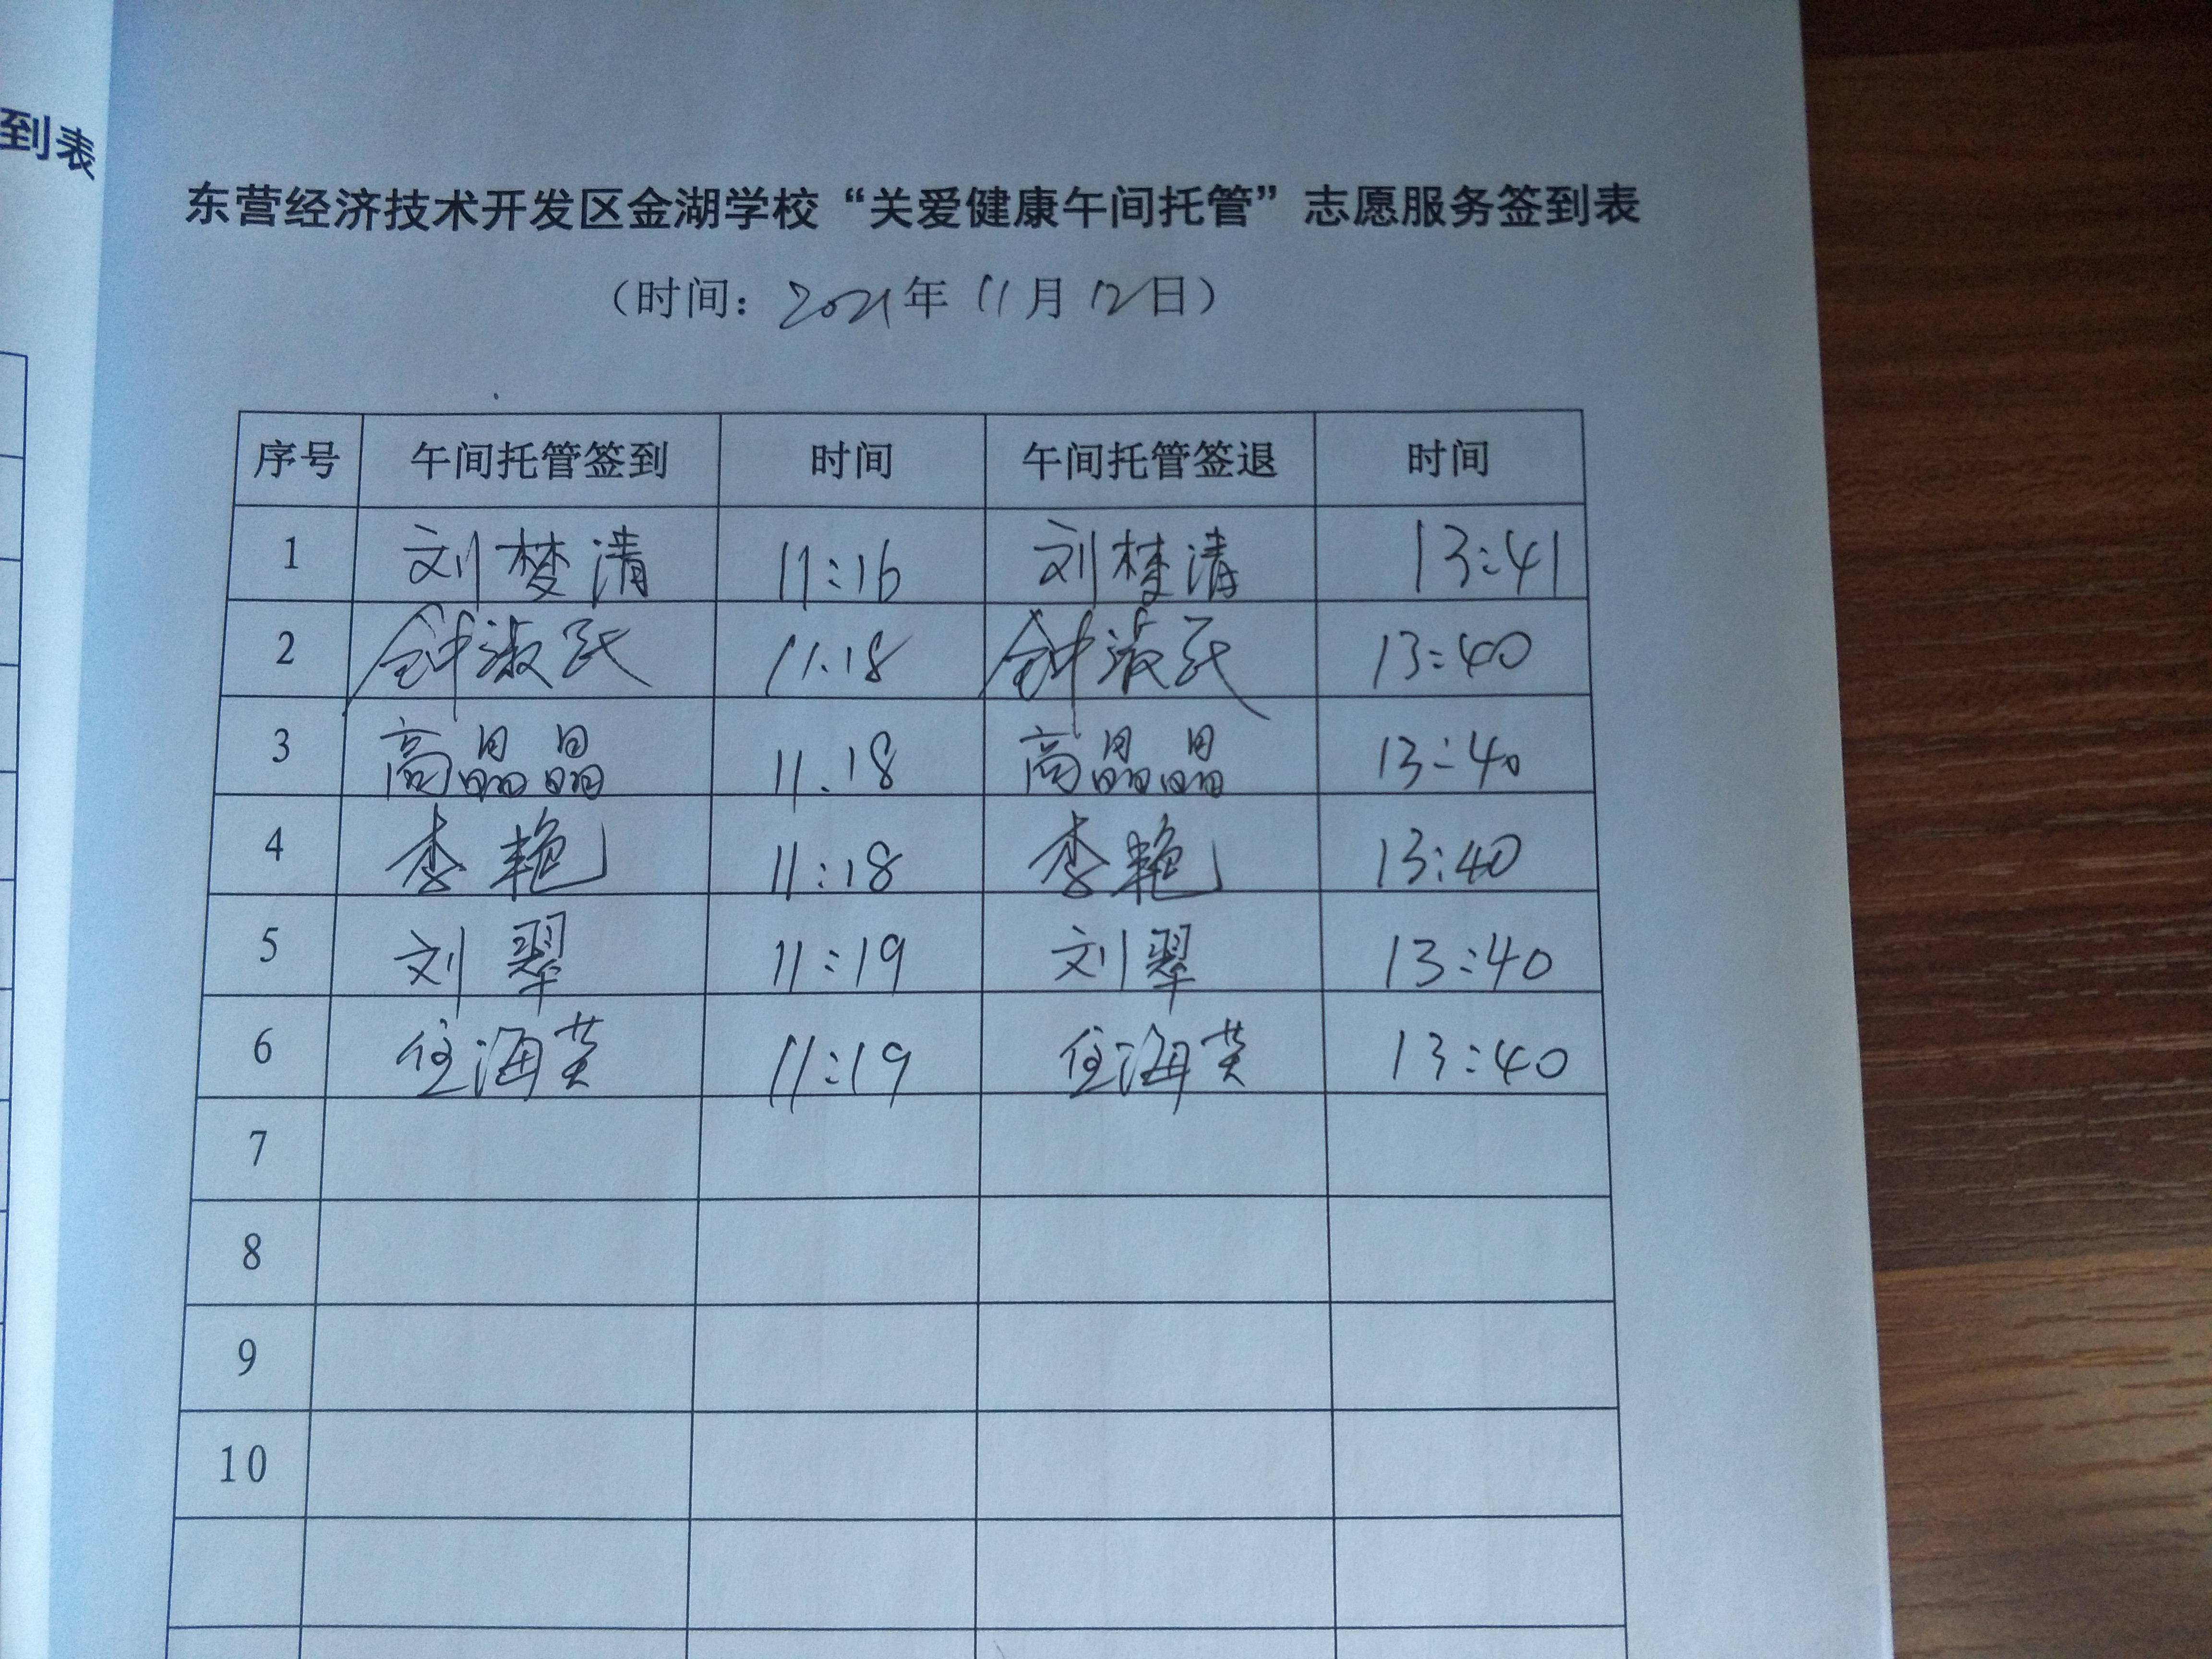 到表
东营经济技术开发区金湖学校“关爱健康午间托管”志愿服务签到表
（时间：2021年 11月 12日）
序号 午间托管签到 时间 午间托管签退 时间
1 刘梦清 11:16 刘梦清 13:41
2 钟淑民 11.18 钟淑民 13:40
3 高晶晶 11.18 高晶晶 13:40
4 李艳 11:18 李艳 13:40
5 刘翠 11:19 刘翠 13:40
6 海英 11:19 海英 13:40
7
8
9
10